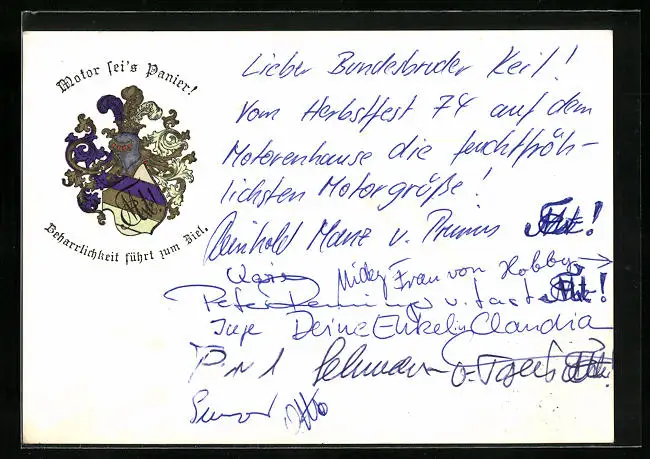 Motor sei's Panier!
Beharrlichkeit führt zum Ziel.
Lieber Bundesbruder Keil!
Vom Herbstfest 74 auf dem
Motorenhause die feuchtfröh-
lichsten Motorgrüße!
Reinhold Manz v. Primus
Frau von Hobby
Peter v.
Inge Deine Enkelin Claudia
v.
Otto